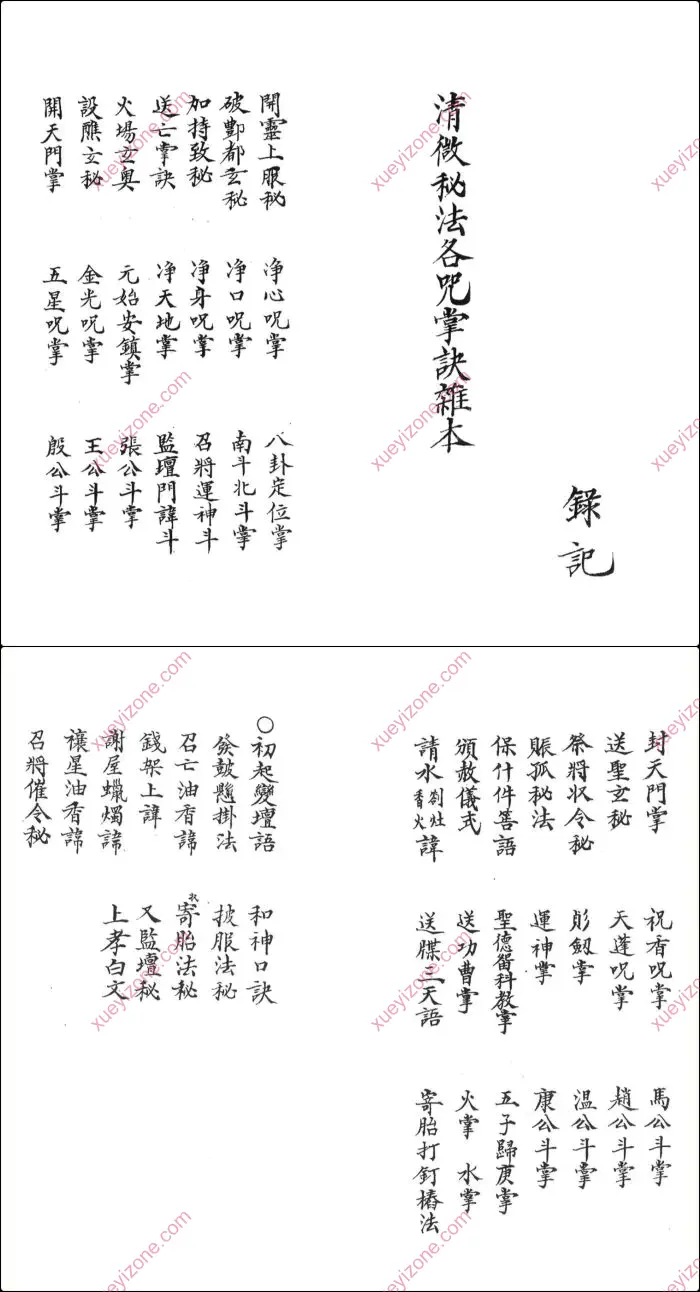 錄記
清微秘法各呪掌訣雜本
開靈上服秘 净心呪掌 八卦定位掌
破酆都玄秘 净口呪掌 南斗北斗掌
加持致秘 净身呪掌 召將運神斗
送亡掌訣 净天地掌 監壇門諱斗
火場玄奥 元始安鎮掌 張公斗掌
設醮玄秘 金光呪掌 王公斗掌
開天門掌 五星呪掌 殷公斗掌
封天門掌 祝香呪掌 馬公斗掌
送聖玄秘 天蓬呪掌 趙公斗掌
祭將收令秘 剑掌 温公斗掌
賑孤秘法 運神掌 康公斗掌
保什件善語 聖德留科教掌 五子歸庚掌
頒赦儀式 送功曹掌 火掌 水掌
請水 劄灶 香火 諱 送牒三天語 寄胎打釘樁法
○初起變壇語 和神口訣
發鼓懸掛法 披服法秘
召亡油香諱 收寄胎法秘
錢架上諱 又監壇秘
謝屋蠟燭諱 上孝白文
禳星油香諱
召將催令秘
xueyizone.com